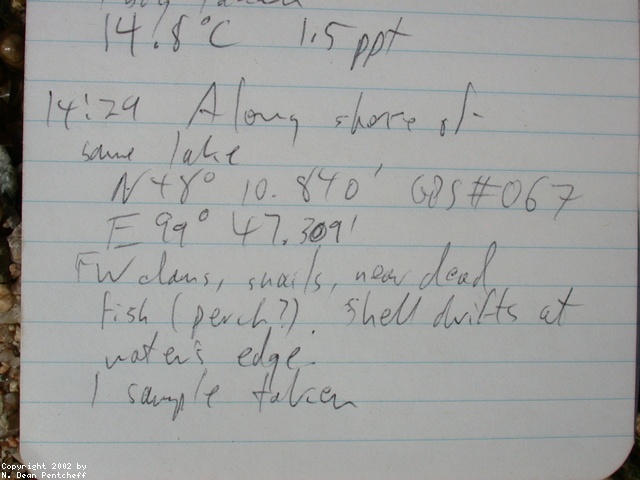 1 bag taken
14.8°C 1.5 ppt
14:29 Along shore of
same lake
N 48° 10.840' GPS#067
E 99° 47.309'
FW clams, snails, near dead
fish (perch?). Shell drifts at
water's edge.
1 sample taken
Copyright 2002 by
N. Dean Pentcheff